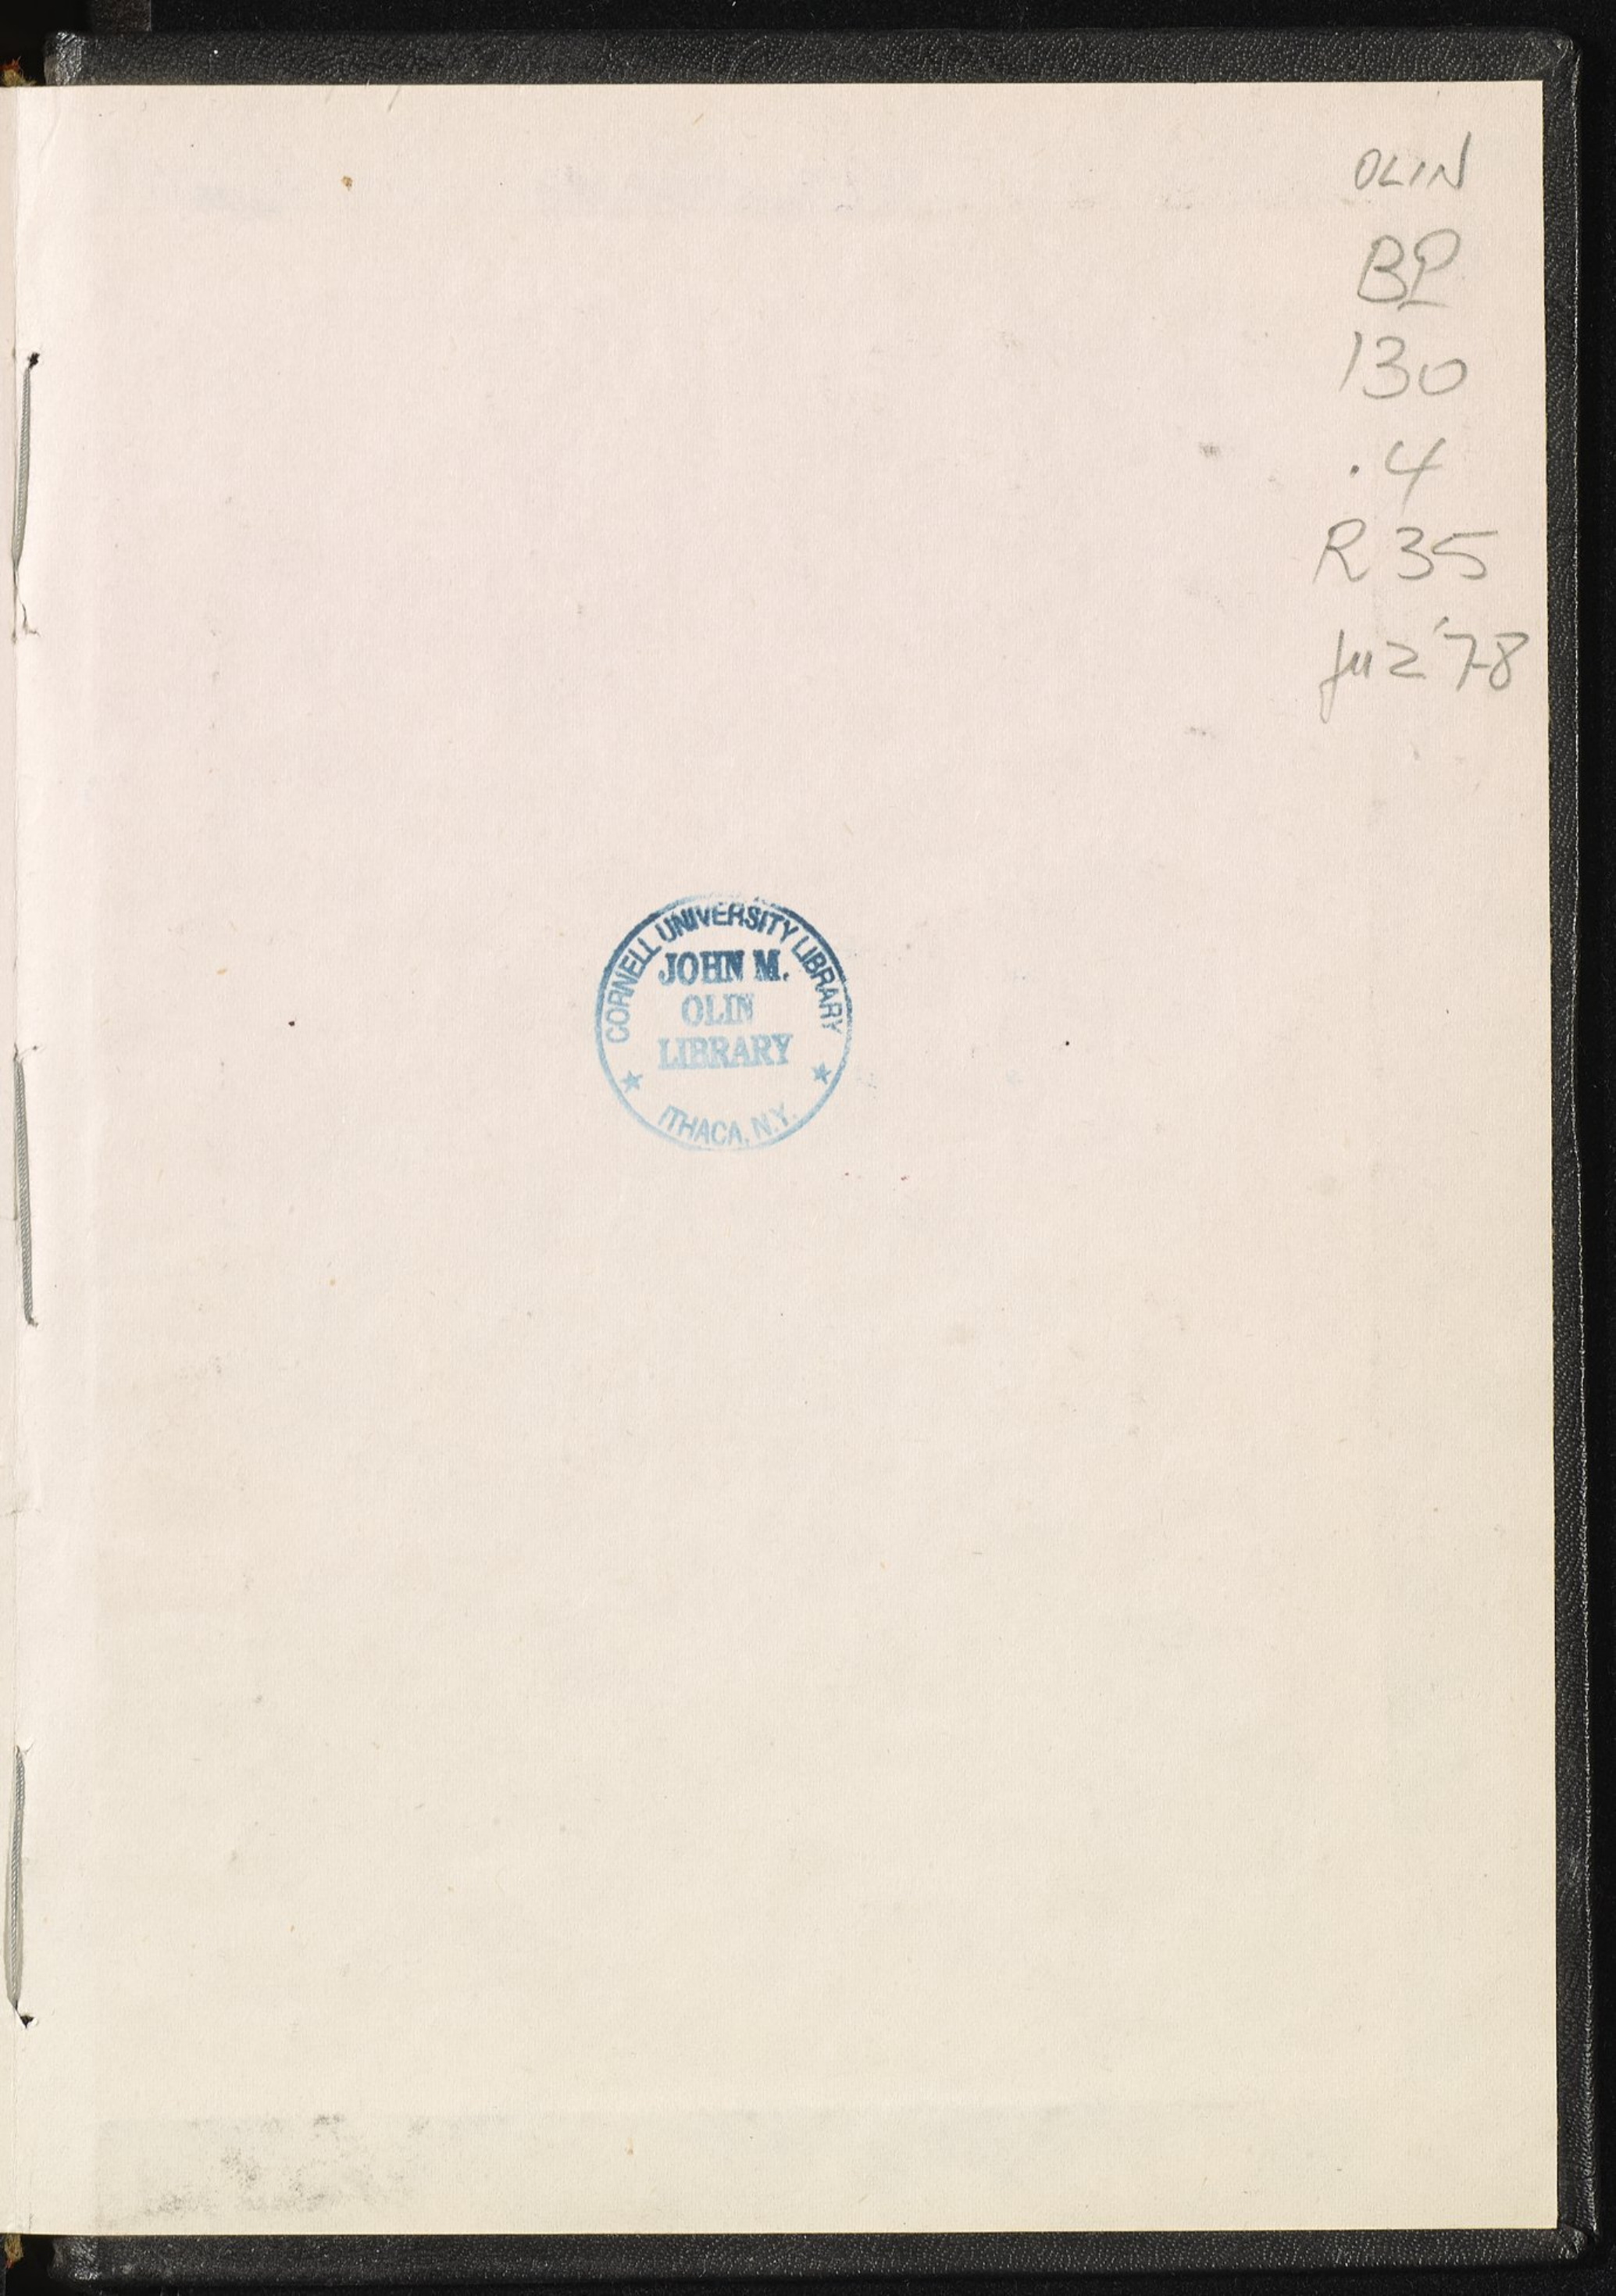 OLIN
BP
130
.4
R35
juz '78
CORNELL UNIVERSITY LIBRARY
JOHN M.
OLIN
LIBRARY
ITHACA, N.Y.